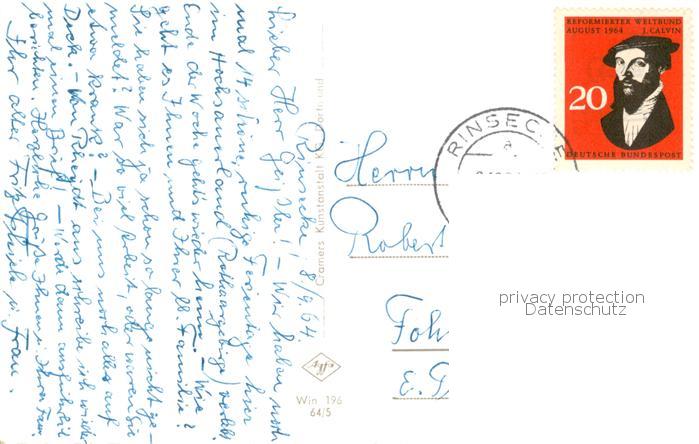 (Rinsecke, 8/9.64.
Lieber Herr! – Wir haben noch
mal 14 schöne, ruhige Ferientage hier
im Hochsauerland (Rothaargebirge) verlebt.
Ende der Woche geht's wieder heim. – Wie
geht es Ihnen und Ihrer lb Familie?
Sie haben sich ja schon so lange nicht ge-
meldet? War so viel Arbeit, oder waren Sie
etwa krank? – Bei uns noch alles auf
Deck. – Von Rheydt aus schreibe ich wieder
mal einen Brief! – Werde dann ausführlich
berichten. Herzliche Grüße Ihnen u. Ihrer Fam.
Ihr alter u. Frau.
Cramers Kunstanstalt KG, Dortmund
Win 196
64/5
Herrn
Robert
Foh
E.
REFORMIERTER WELTBUND
AUGUST 1964 J. CALVIN
20
DEUTSCHE BUNDESPOST
RINSECKE
privacy protection
Datenschutz